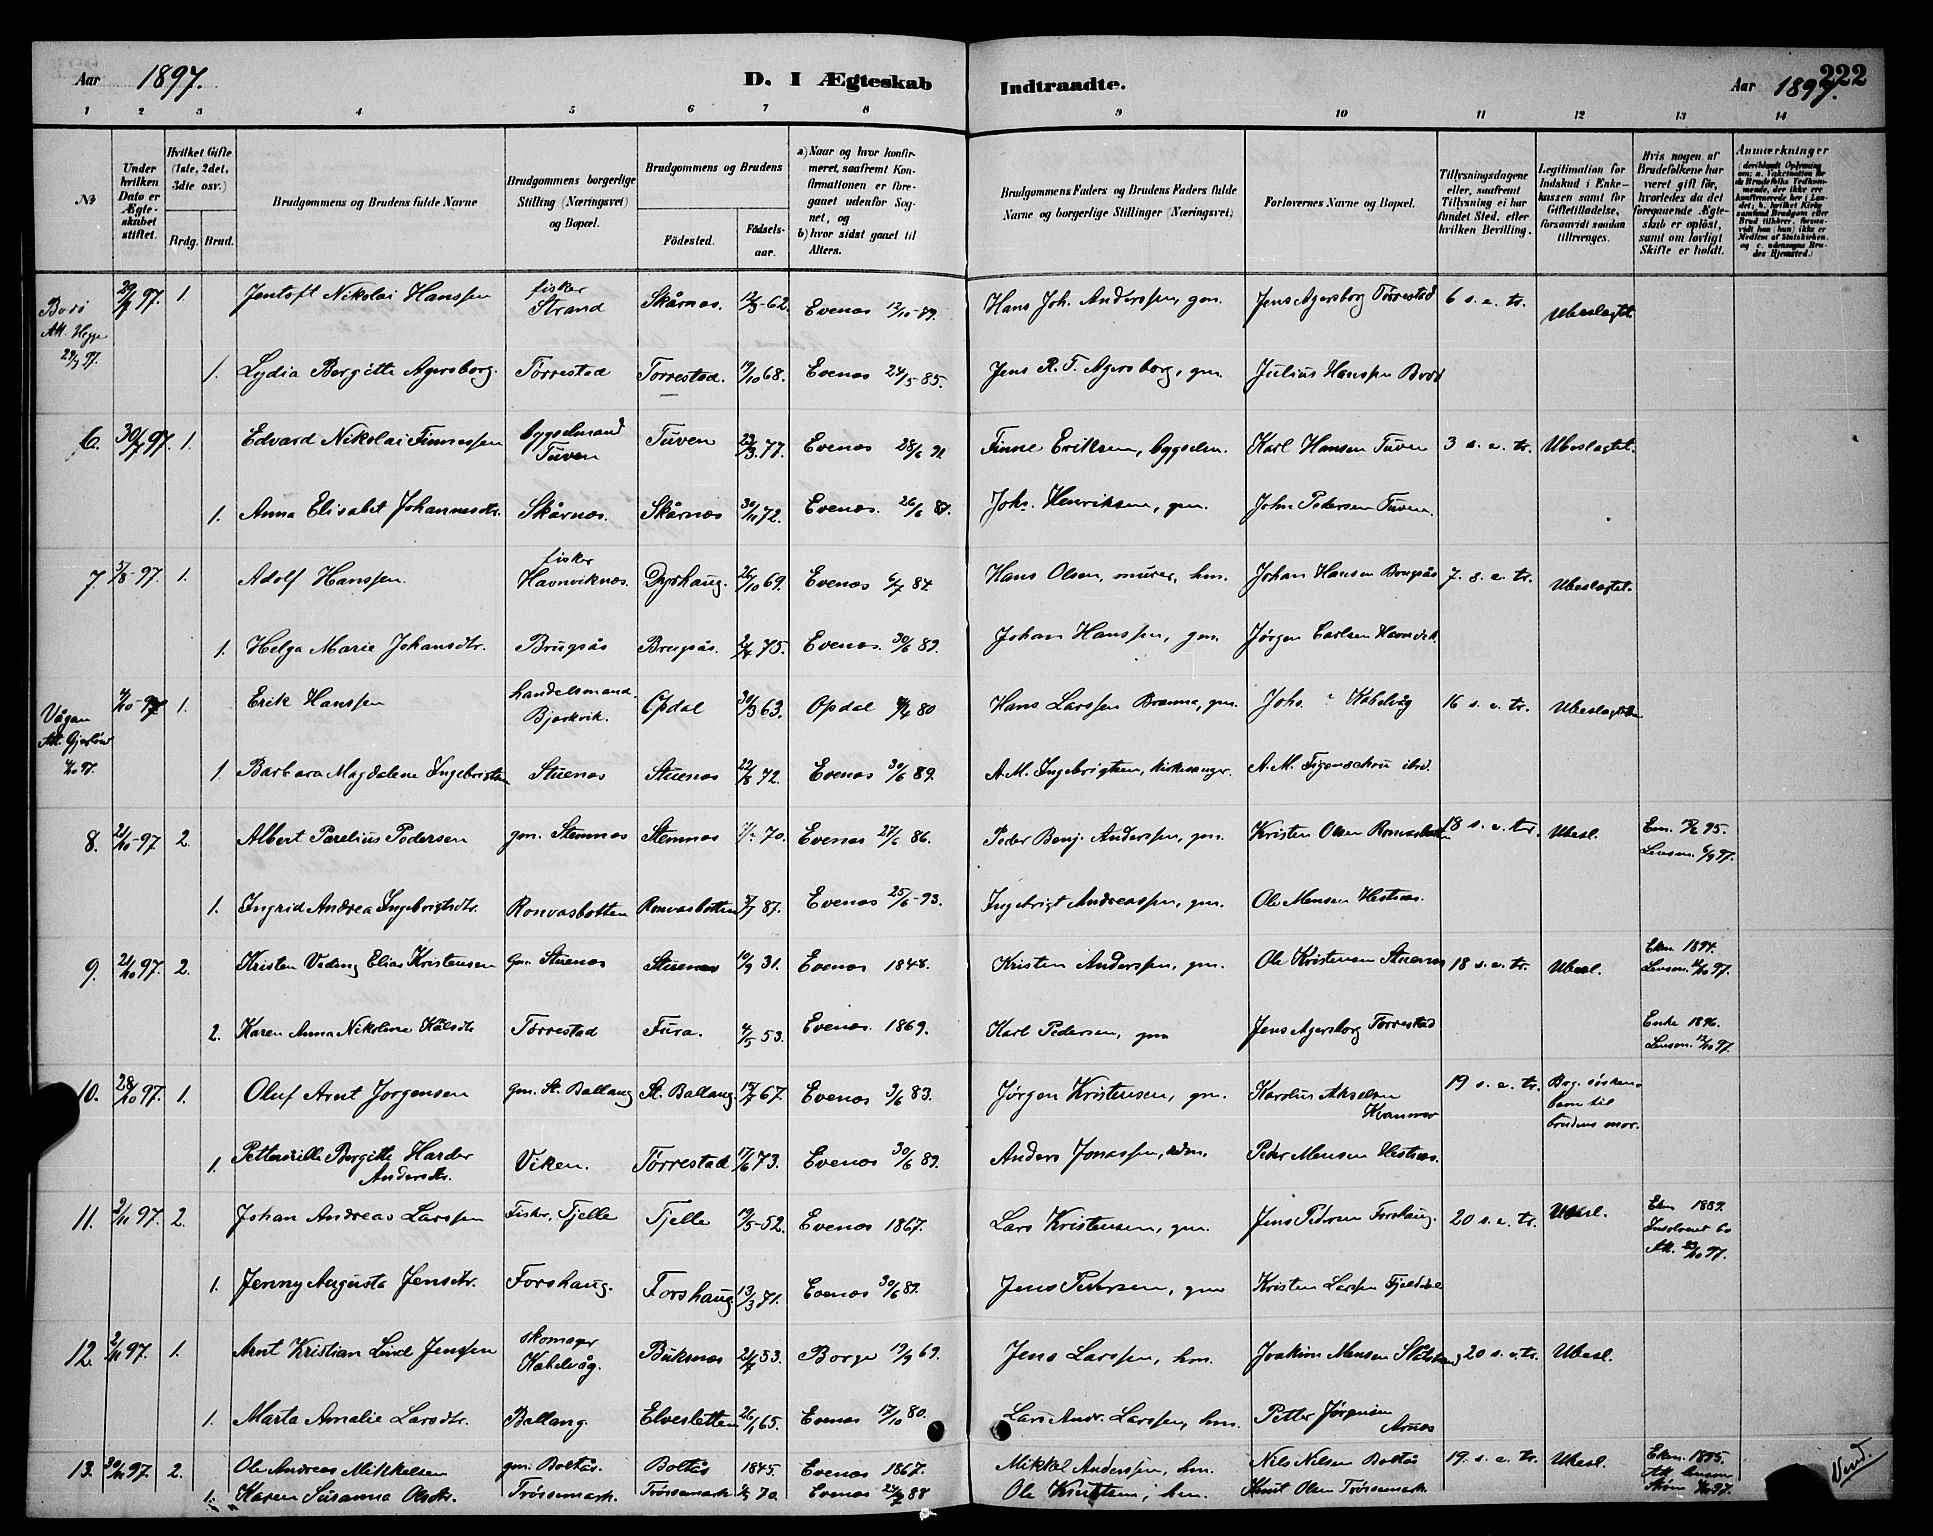 Aar 1897. D. I Ægteskab Indtraadte. Aar 1897. 222
1 2 3 4 5 6 7 8 9 10 11 12 13 14
No
Under hvilken Dato er Ægteskabet stiftet.
Hvilket Gifte (1ste, 2det, 3die osv.)
Brdg. Brud.
Brudgommens og Brudens fulde Navne
Brudgommens borgerlige Stilling (Næringsvei) og Bopæl.
Brudgommens og Brudens
Fødested. Fødselsaar.
a) Naar og hvor konfirmeret, saafremt Konfirmationen er foregaaet udenfor Sognet, og
b) hvor sidst gaaet til Alters.
Brudgommens Faders og Brudens Faders fulde Navne og borgerlige Stillinger (Næringsvei)
Forlovernes Navne og Bopæl.
Tillysningsdagene eller, saafremt Tillysning ei har fundet Sted, efter hvilken Bevilling.
Legitimation for Indskud i Enkekassen samt for Giftetilladelse, forsaavidt saadan tiltrænges.
Hvis nogen af Brudefolkene har været gift før, hvorledes da det foregaaende Ægteskab er opløst, samt om lovligt Skifte er holdt.
Anmærkninger
Bodø 29/7 97. 1. Jentoft Nikolai Hanssen fisker Strand Skårnes. 12/5-62. Evenes 12/10-89. Hans Joh. Anderssen, gm. Jens Agersborg Tørrestad 6 s. e. tr. Ubeslægtet
Att. Heppe 29/7 97.
1. Lydia Bergitte Agersborg. Tørrestad Tørrestad. 19/10 68. Evenes 24/5-85. Jens R. T. Agersborg, gm. Julius Hanssen Bodø
6. 30/7 97. 1. Edvard Nikolai Finnessen bygselmand Tuven Tuven 22/3 77. Evenes 28/6 91 Finne Eriksen, bygselm. Karl Hansen Tuven 3 s. e. tr. Ubeslægtet.
1. Anna Elisabet Johannesdtr. Skårnes. Skårnes 30/11 72. Evenes. 26/6 87. Johs. Henriksen, gm. John Pedersen Tuven.
7. 5/8-97. 1. Adolf Hanssen. fisker Havnviknes. Dyrhaug. 26/10 69. Evenes 6/7 84 Hans Olsen, murer, hm. Johan Hansen Brugsås 7. s. e. tr. Ubeslægtet.
1. Helga Marie Johansdtr. Brugsås Brugsås. 2/4 75. Evenes. 30/6 89. Johan Hanssen, gm. Jørgen Carlsen Havnvik
Vågan 4/10-97 1. Erik Hanssen handelsmand. Bjerkvik. Opdal 30/3 63. Opdal 80 Hans Larssen Bramna, gm. Johs. ? Kabelvåg 16 s. e. tr. Ubeslægtede
Att. Gjerløw 4/10 97.
1. Barbara Magdalene Ingebrigtsen Stuenes Stuenes 22/8 72. Evenes 30/6 89. A. M. Ingebrigtsen, kirkesanger. A. M. Figenschou ibd.
8. 21/10-97 2. Albert Parelius Pedersen gm. Stemnes Stemnes 70. Evenes 27/6 86. Peder Benj. Anderssen, gm. Kristen Olsen Ronvasbotten 18 s. e. tr. Ubesl. Em. 95. Lensm. 6/9 97.
1. Ingrid Andrea Ingebrigtsdtr. Ronvasbotten Ronvasbotten 87. Evenes 25/6-93. Ingebrigt Andreassen, gm. Ole Monsen Hestnes.
9. 21/10 97. 2. Kristen Veding Elias Kristensen gm. Stuenes Stuenes 10/9 31. Evenes 1848. Kristen Anderssen, gm. Ole Kristensen Stuenes 18 s. e. tr. Ubesl. Ekm. 1894. Lensm. 97.
2. Karen Anna Nikoline Kalsdtr Tørrestad Fura. 4/5 53. Evenes 1869. Karl Pedersen, gm Jens Agersborg Tørrestad Enke 1896. Lensm. 12/10 97.
10. 28/10 97. 1. Oluf Arnt Jørgensen gm. St. Ballang St. Ballang. 67. Evenes 3/6 83. Jørgen Kristensen, gm. Karolius Akselsen Kvannes 19 s. e. tr. Brg. søskenbarn til brudens mor.
1. Petternille Bergitte Harder Andersdtr. Viken. Tørrestad 17/6 73. Evenes 30/6 89. Anders Jonassen, Peder Monsen Hestnes.
11. 2/11 97. 2. Johan Andreas Larssen Fisker, Tjelle Tjelle 19/5-52. Evenes 1867. Lars Kristensen, gm. Jens Pedersen Forshaug. 20 s. e. tr. Ubesl. Ekm 1889. Insolvent bo Att. 23/10 97.
1. Jenny Augusta Jensdtr. Forshaug. Forshaug 13/3 71. Evenes 30/6 89. Jens Pedersen, gm Kristen Larsen Fjelddal
12. 2/11 97. 1. Arnt Kristian Lind Jenssen skomager Kabelvåg. Buksnes 53. Borge 19/9 69. Jens Larssen, hm. Joakim Monsen 20 s. e. tr. Ubesl.
1. Marta Amalie Larsdtr. Ballang. Elvesletten 26/1 65. Evenes 17/10 80. Lars Andr. Larssen, hm. Petter Jørgensen Arnes
13. 30/11 97. 2. Ole Andreas Mikkelsen gm. Boltås. Boltås 1845. Evenes 1867. Mikkel Anderssen, hm. Nils Nilsen Boltås 19. s. e. tr. Ubesl. Ekm. 1895. Att. lensm.
1. Karen Susanna Olsdtr. Trøssemark. Trøssemark 70. Evenes 88 Ole Knutsen, hm. Knut Olsen Trøssemark
Vend.